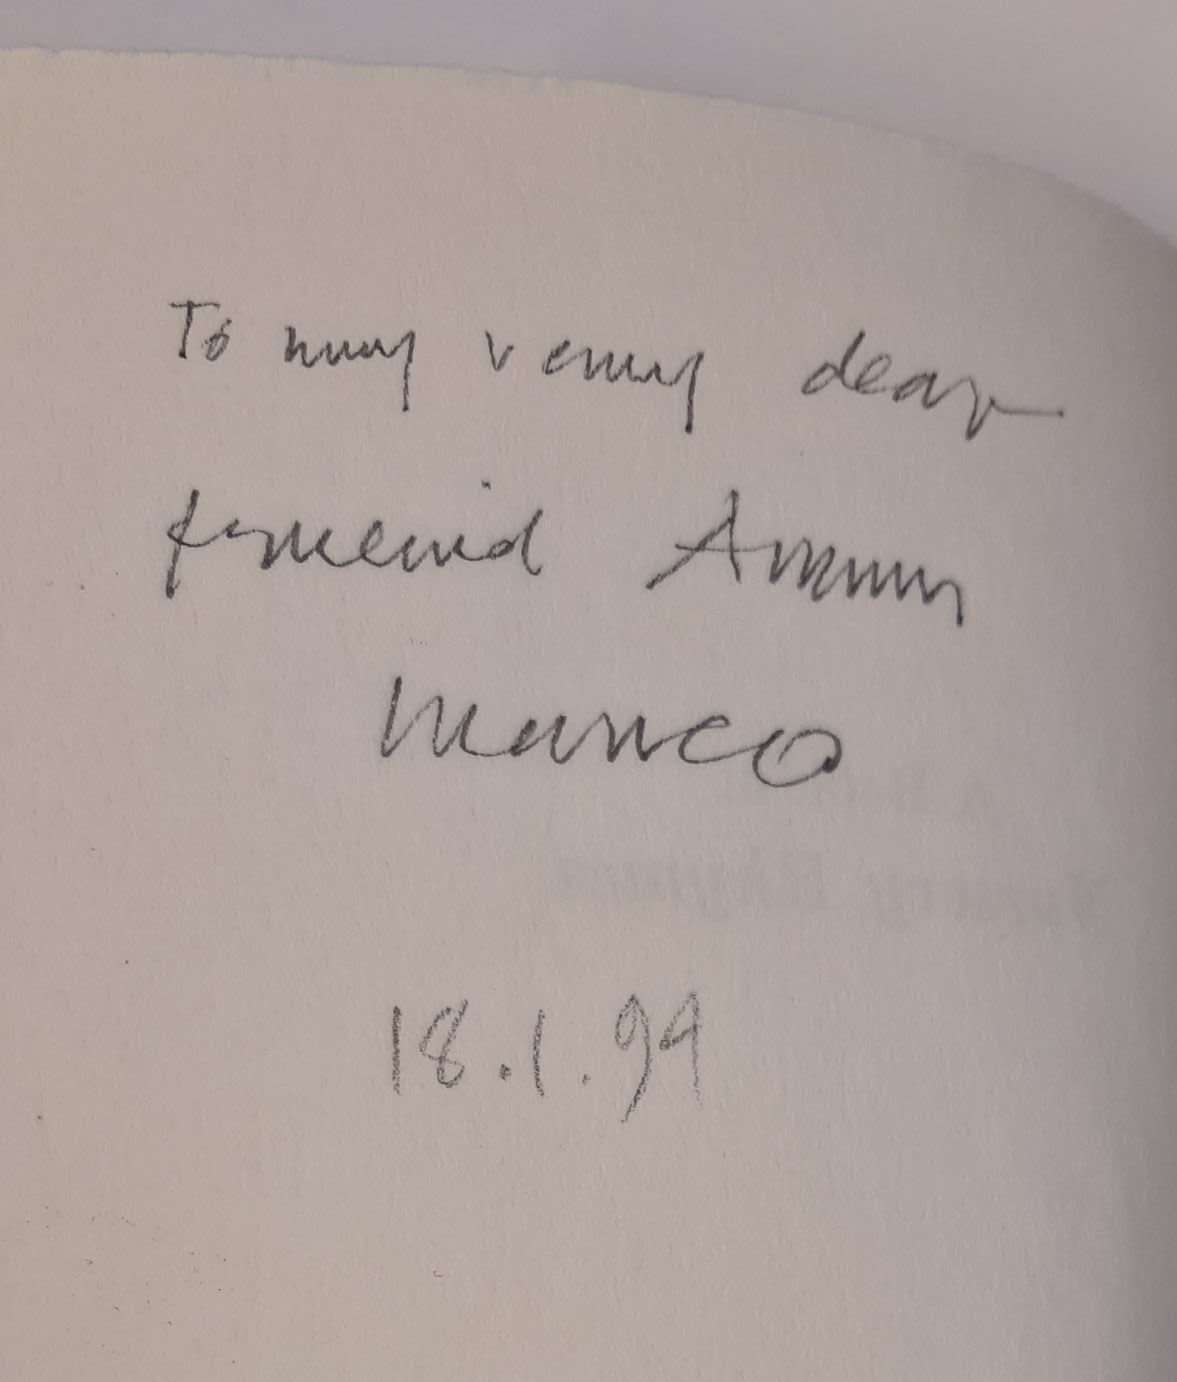 To my very dear
friend
Marco
18.1.99